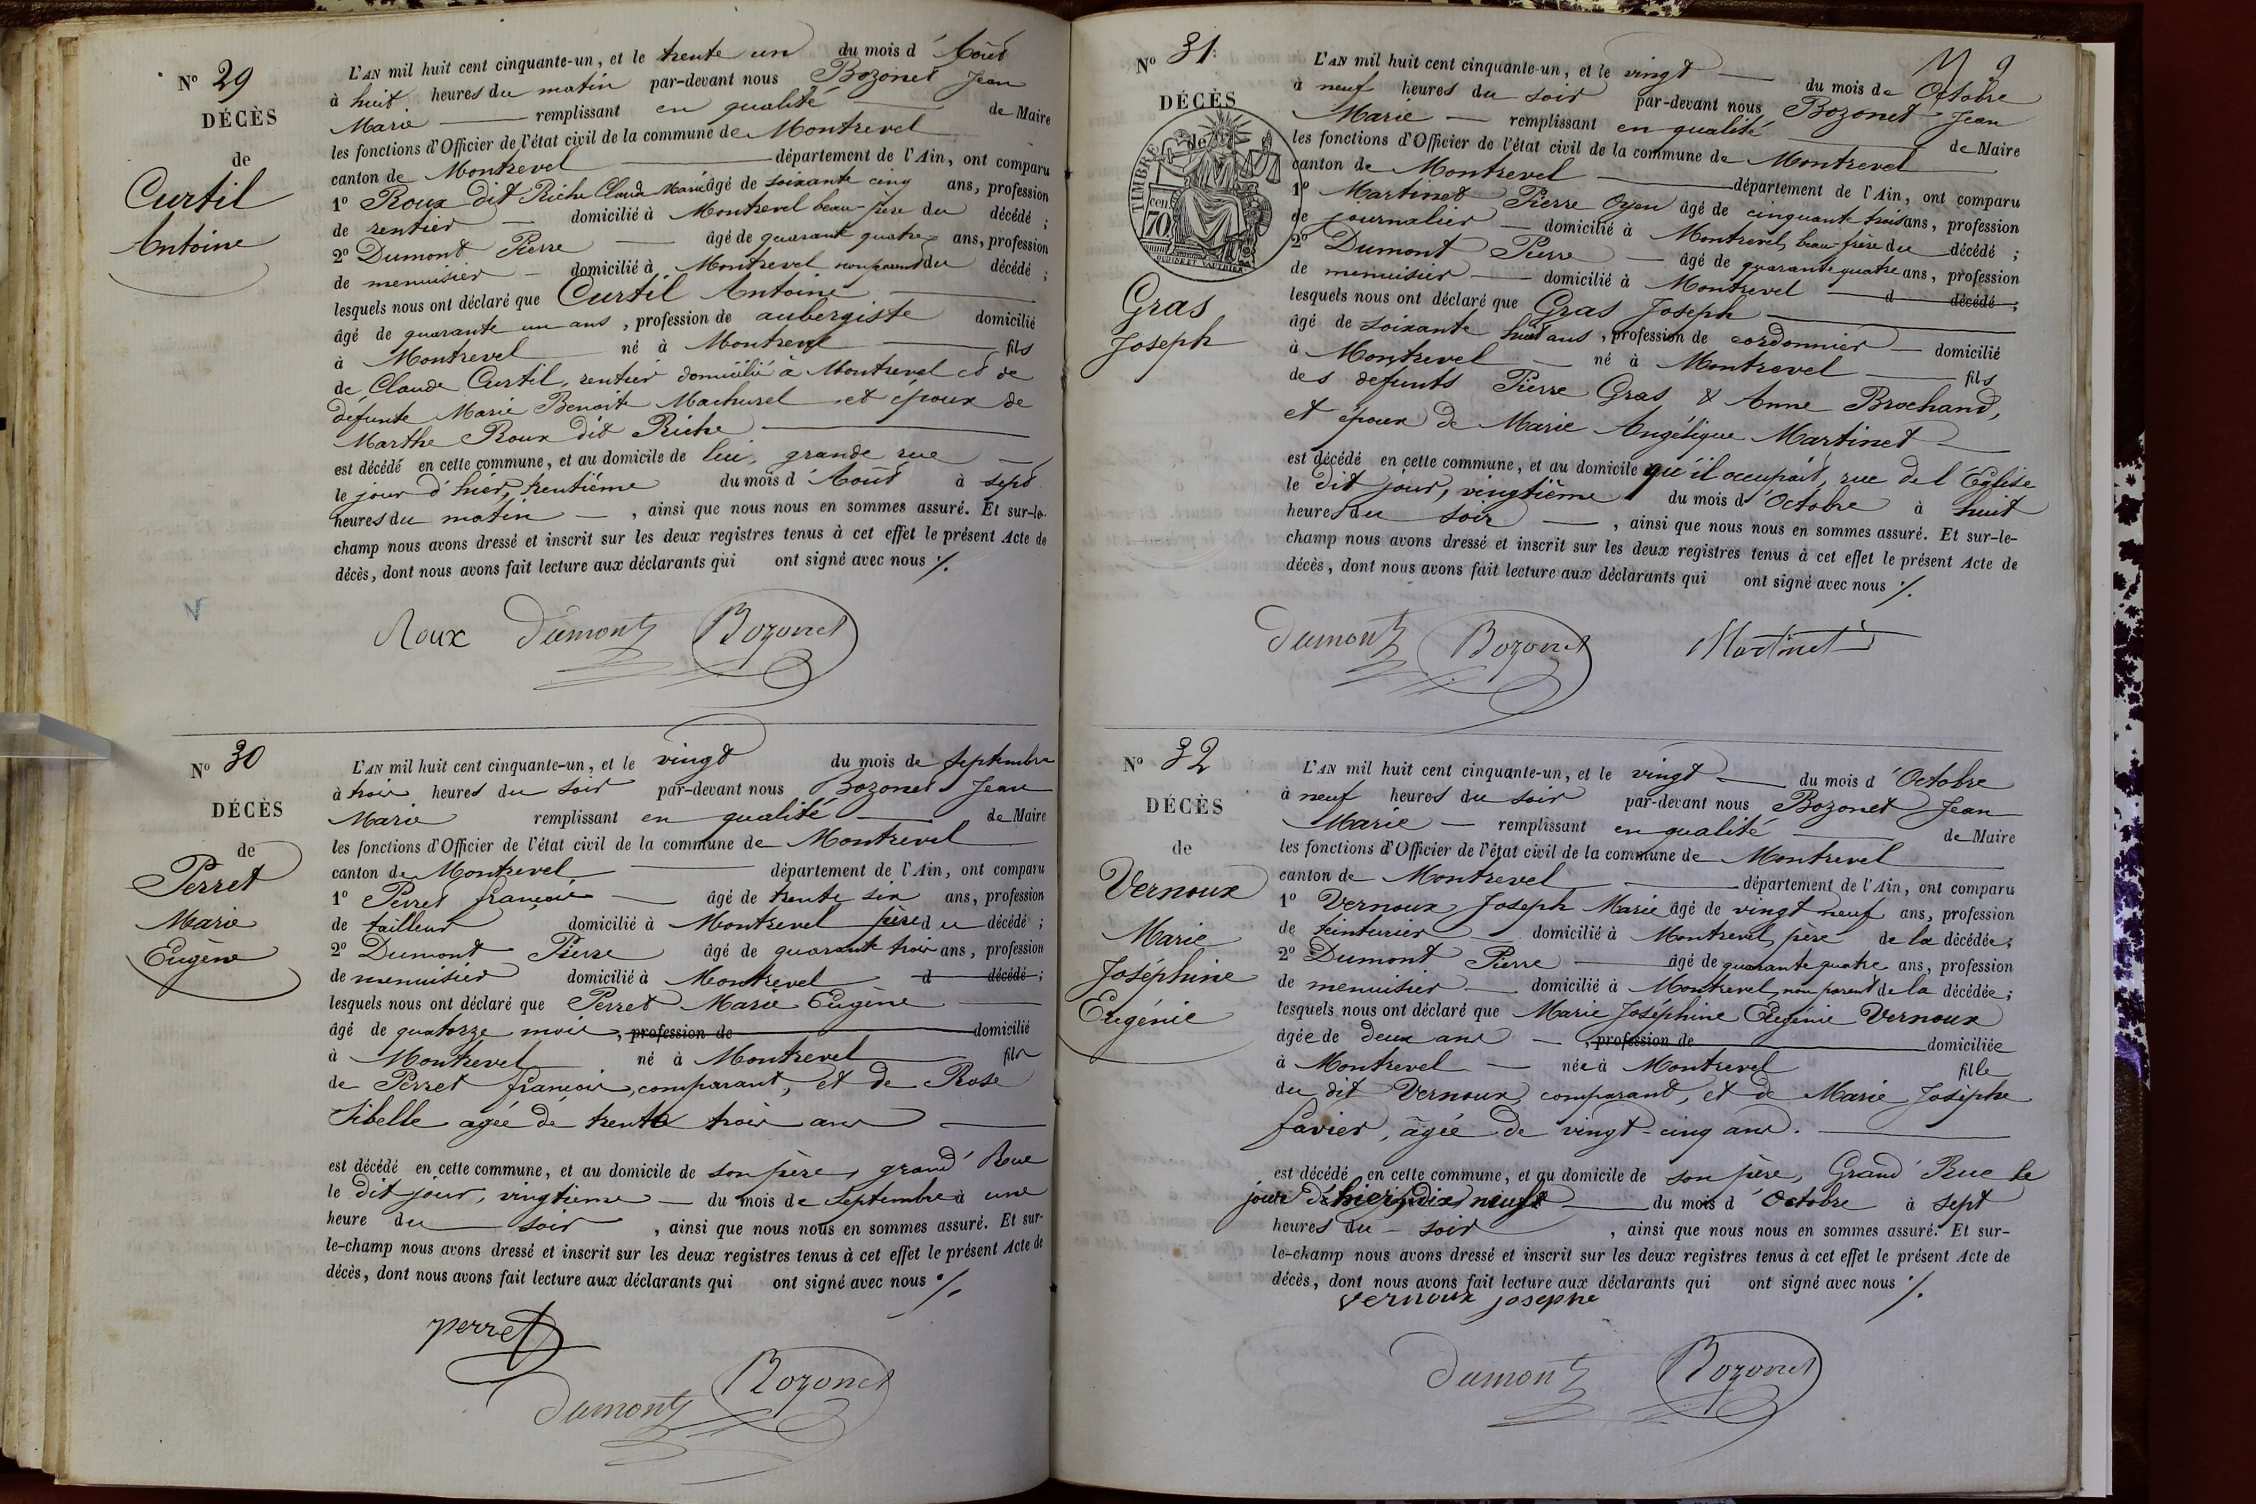 N° 29
DÉCÈS
de
Curtil
Antoine
L'AN mil huit cent cinquante-un, et le trente un du mois d'Août
à huit heures du matin par-devant nous Bozonet Jean
Marie remplissant en qualité de Maire
les fonctions d'Officier de l'état civil de la commune de Montrevel
canton de Montrevel département de l'Ain, ont comparu
1° Roux dit Riche Claude Marie âgé de soixante cinq ans, profession
de rentier domicilié à Montrevel beau-père du décédé ;
2° Dumont Pierre âgé de quarante quatre ans, profession
de menuisier domicilié à Montrevel non parent du décédé ;
lesquels nous ont déclaré que Curtil Antoine
âgé de quarante un ans, profession de aubergiste domicilié
à Montrevel né à Montrevel fils
de Claude Curtil, rentier domicilié à Montrevel et de
défunte Marie Benoite Machurel et époux de
Marthe Roux dit Riche
est décédé en cette commune, et au domicile de lui, grande rue
le jour d'hier, trentième du mois d'Août à sept
heures du matin, ainsi que nous nous en sommes assuré. Et sur-le-
champ nous avons dressé et inscrit sur les deux registres tenus à cet effet le présent Acte de
décès, dont nous avons fait lecture aux déclarants qui ont signé avec nous ./.
Roux Dumont Bozonet
N° 30
DÉCÈS
de
Perret
Marie
Eugène
L'AN mil huit cent cinquante-un, et le vingt du mois de Septembre
à trois heures du soir par-devant nous Bozonet Jean
Marie remplissant en qualité de Maire
les fonctions d'Officier de l'état civil de la commune de Montrevel
canton de Montrevel département de l'Ain, ont comparu
1° Perret françois âgé de trente six ans, profession
de tailleur domicilié à Montrevel père du décédé ;
2° Dumont Pierre âgé de quarante trois ans, profession
de menuisier domicilié à Montrevel d décédé ;
lesquels nous ont déclaré que Perret Marie Eugène
âgé de quatorze mois, profession de domicilié
à Montrevel né à Montrevel fils
de Perret françois, comparant, et de Rose
Sibelle agée de trente trois ans
est décédé en cette commune, et au domicile de son père, grand' Rue
le dit jour, vingtième du mois de Septembre à une
heure du soir, ainsi que nous nous en sommes assuré. Et sur-
le-champ nous avons dressé et inscrit sur les deux registres tenus à cet effet le présent Acte de
décès, dont nous avons fait lecture aux déclarants qui ont signé avec nous ./.
perret
Dumont Bozonet
N° 31
DÉCÈS
de
TIMBRE
70 cen
Gras
Joseph
L'AN mil huit cent cinquante-un, et le vingt du mois de Octobre
à neuf heures du soir par-devant nous Bozonet Jean
Marie remplissant en qualité de Maire
les fonctions d'Officier de l'état civil de la commune de Montrevel
canton de Montrevel département de l'Ain, ont comparu
1° Martinet Pierre Oyen âgé de cinquante trois ans, profession
de journalier domicilié à Montrevel, beau-frère du décédé ;
2° Dumont Pierre âgé de quarante quatre ans, profession
de menuisier domicilié à Montrevel d décédé ;
lesquels nous ont déclaré que Gras Joseph
âgé de soixante huit ans, profession de cordonnier domicilié
à Montrevel né à Montrevel fils
des defunts Pierre Gras & Anne Brochand,
et époux de Marie Angélique Martinet
est décédé en cette commune, et au domicile qu'il occupait, rue de l'Église
le dit jour, vingtième du mois d'Octobre à huit
heures du soir, ainsi que nous nous en sommes assuré. Et sur-le-
champ nous avons dressé et inscrit sur les deux registres tenus à cet effet le présent Acte de
décès, dont nous avons fait lecture aux déclarants qui ont signé avec nous ./.
Dumont Bozonet Martinet
N° 32
DÉCÈS
de
Vernoux
Marie
Joséphine
Eugénie
L'AN mil huit cent cinquante-un, et le vingt du mois d'Octobre
à neuf heures du soir par-devant nous Bozonet Jean
Marie remplissant en qualité de Maire
les fonctions d'Officier de l'état civil de la commune de Montrevel
canton de Montrevel département de l'Ain, ont comparu
1° Vernoux Joseph Marie âgé de vingt neuf ans, profession
de teinturier domicilié à Montrevel, père de la décédée ;
2° Dumont Pierre âgé de quarante quatre ans, profession
de menuisier domicilié à Montrevel, non parent de la décédée ;
lesquels nous ont déclaré que Marie Joséphine Eugénie Vernoux
âgée de deux ans, profession de domiciliée
à Montrevel née à Montrevel fille
du dit Vernoux, comparant, et de Marie Josèphe
favier, âgée de vingt-cinq ans.
est décédé en cette commune, et au domicile de son père, Grand' Rue le
jour d'hier, dix neuf du mois d'Octobre à sept
heures du soir, ainsi que nous nous en sommes assuré. Et sur-
le-champ nous avons dressé et inscrit sur les deux registres tenus à cet effet le présent Acte de
décès, dont nous avons fait lecture aux déclarants qui ont signé avec nous ./.
vernoux josephe
Dumont Bozonet